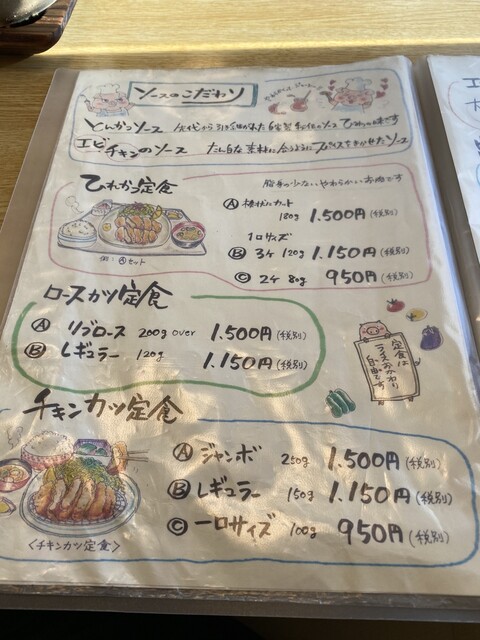 ソースのこだわり
とんかつソース 先代から引き継がれた自家製 秘伝のソース ひみつの味です
エビ、チキンのソース たん白な素材に合うようにフルーツをきかせたソース
ひれかつ定食 脂身の少ないやわらかいお肉です
Ⓐ 棒状にカット
180g 1.500円(税別)
1口サイズ
Ⓑ 3ケ 120g 1.150円(税別)
Ⓒ 2ケ 80g 950円(税別)
例:Ⓐセット
ロースカツ定食
Ⓐ リブロース 200g over 1.500円(税別)
Ⓑ レギュラー 120g 1.150円(税別)
定食は
ライスおかわり
自由です
チキンカツ定食
Ⓐ ジャンボ 250g 1.500円(税別)
Ⓑ レギュラー 150g 1.150円(税別)
Ⓒ 一口サイズ 100g 950円(税別)
〈チキンカツ定食〉